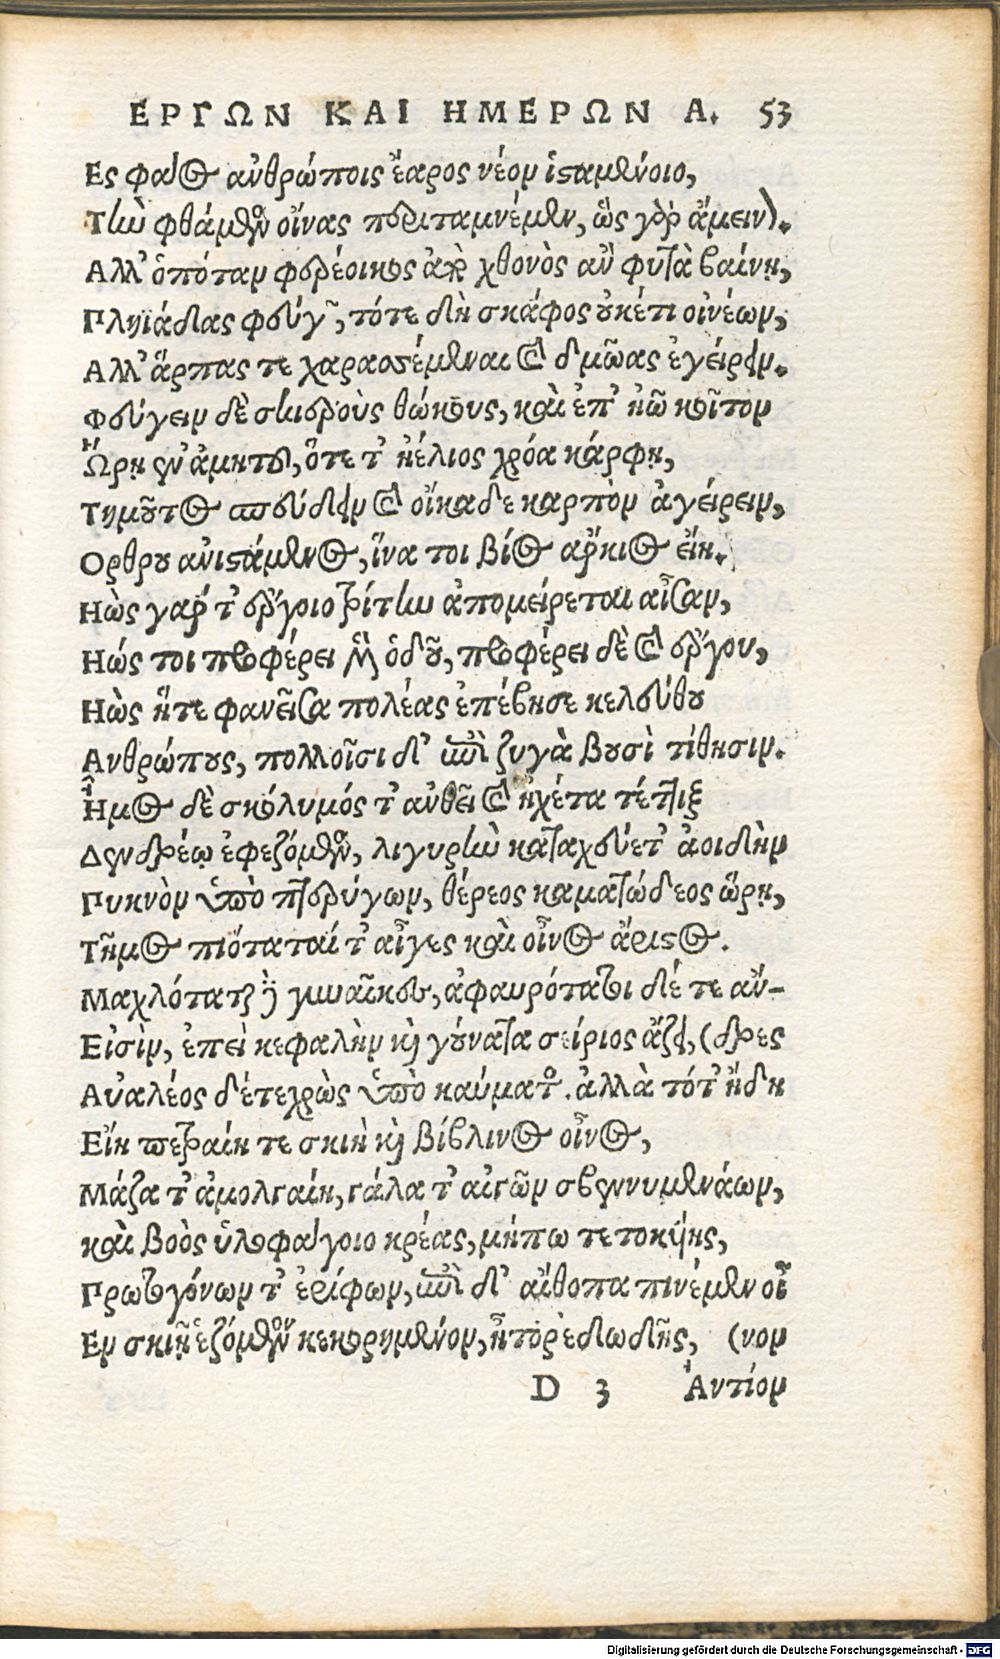 ΕΡΓΩΝ ΚΑΙ ΗΜΕΡΩΝ Α. 53
Ες φάος ἀνθρώποις ἔαρος νέον ἱσταμένοιο,
Τὴν φθάμενος οἴνας περιταμνέμεν, ὣς γὰρ ἄμεινον.
Αλλ' ὁπόταν φερέοικος ἀπὸ χθονὸς ἂν φυτὰ βαίνῃ,
Πληϊάδας φεύγων, τότε δὴ σκάφος οὐκέτι οἰνέων,
Αλλ' ἅρπας τε χαρασσέμεναι καὶ δμῶας ἐγείρειν.
Φεύγειν δὲ σκιεροὺς θώκους, καὶ ἐπ' ἠῶ κοῖτον
Ὥρῃ ἐν ἀμητοῦ, ὅτε τ' ἠέλιος χρόα κάρφῃ,
Τημοῦτος σπεύδειν καὶ οἴκαδε καρπὸν ἀγείρειν,
Ορθρου ἀνιστάμενος, ἵνα τοι βίος ἄρκιος εἴη.
Ηὼς γάρ τ' ἔργοιο τρίτην ἀπομείρεται αἶσαν,
Ηώς τοι προφέρει μὲν ὁδοῦ, προφέρει δὲ καὶ ἔργου,
Ηὼς ἥτε φανεῖσα πολέας ἐπέβησε κελεύθου
Ανθρώπους, πολλοῖσι δ' ἐπὶ ζυγὰ βουσὶ τίθησιν.
Ἦμος δὲ σκόλυμός τ' ἀνθεῖ καὶ ἠχέτα τέττιξ
Δενδρέῳ ἐφεζόμενος, λιγυρὴν καταχεύετ' ἀοιδὴν
Πυκνὸν ὑπὸ πτερύγων, θέρεος καματώδεος ὥρῃ,
Τῆμος πιόταταί τ' αἶγες καὶ οἶνος ἄριστος.
Μαχλόταται δὲ γυναῖκες, ἀφαυρότατοι δέ τε ἄν-
Εἰσὶν, ἐπεὶ κεφαλὴν καὶ γούνατα σείριος ἄζει, (δρες
Αὐαλέος δέ τε χρὼς ὑπὸ καύματος. ἀλλὰ τότ' ἤδη
Εἴη πετραίη τε σκιὴ καὶ βίβλινος οἶνος,
Μάζα τ' ἀμολγαίη, γάλα τ' αἰγῶν σβεννυμενάων,
καὶ βοὸς ὑλοφάγοιο κρέας, μήπω τετοκυίης,
Πρωτογόνων τ' ἐρίφων, ἐπὶ δ' αἴθοπα πινέμεν οἶ
Εν σκιῇ ἑζόμενον κεκορημένον, ἦτορ ἐδωδῆς, (νον
D 3 Ἀντίον
Digitalisierung gefördert durch die Deutsche Forschungsgemeinschaft - DFG